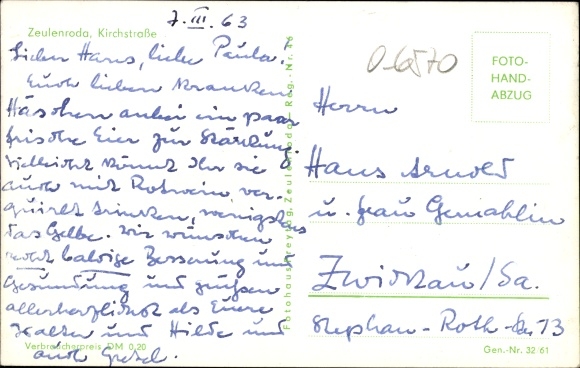 Zeulenroda, Kirchstraße
7. III. 63
Lieber Hans, liebe Paula!
Euch lieben Kranken
Häschen anbei ein paar
frische Eier zur Stärkung.
Vielleicht könnt Ihr sie
auch mit Rotwein ver-
quirlt trinken, wenigstens
das Gelbe. Wir wünschen
recht baldige Besserung und
Gesundung und grüßen
allerherzlichst als Eure
Walter und Hilde und
auch Gretel.
Verbraucherpreis DM 0,20
Fotohaus Freytag, Zeulenroda, Reg.-Nr. 46
06570
FOTO-
HAND-
ABZUG
Herrn
Hans Arnold
u. Frau Gemahlin
Zwickau/Sa.
Stephan-Roth-Str. 13
Gen.-Nr. 32 61